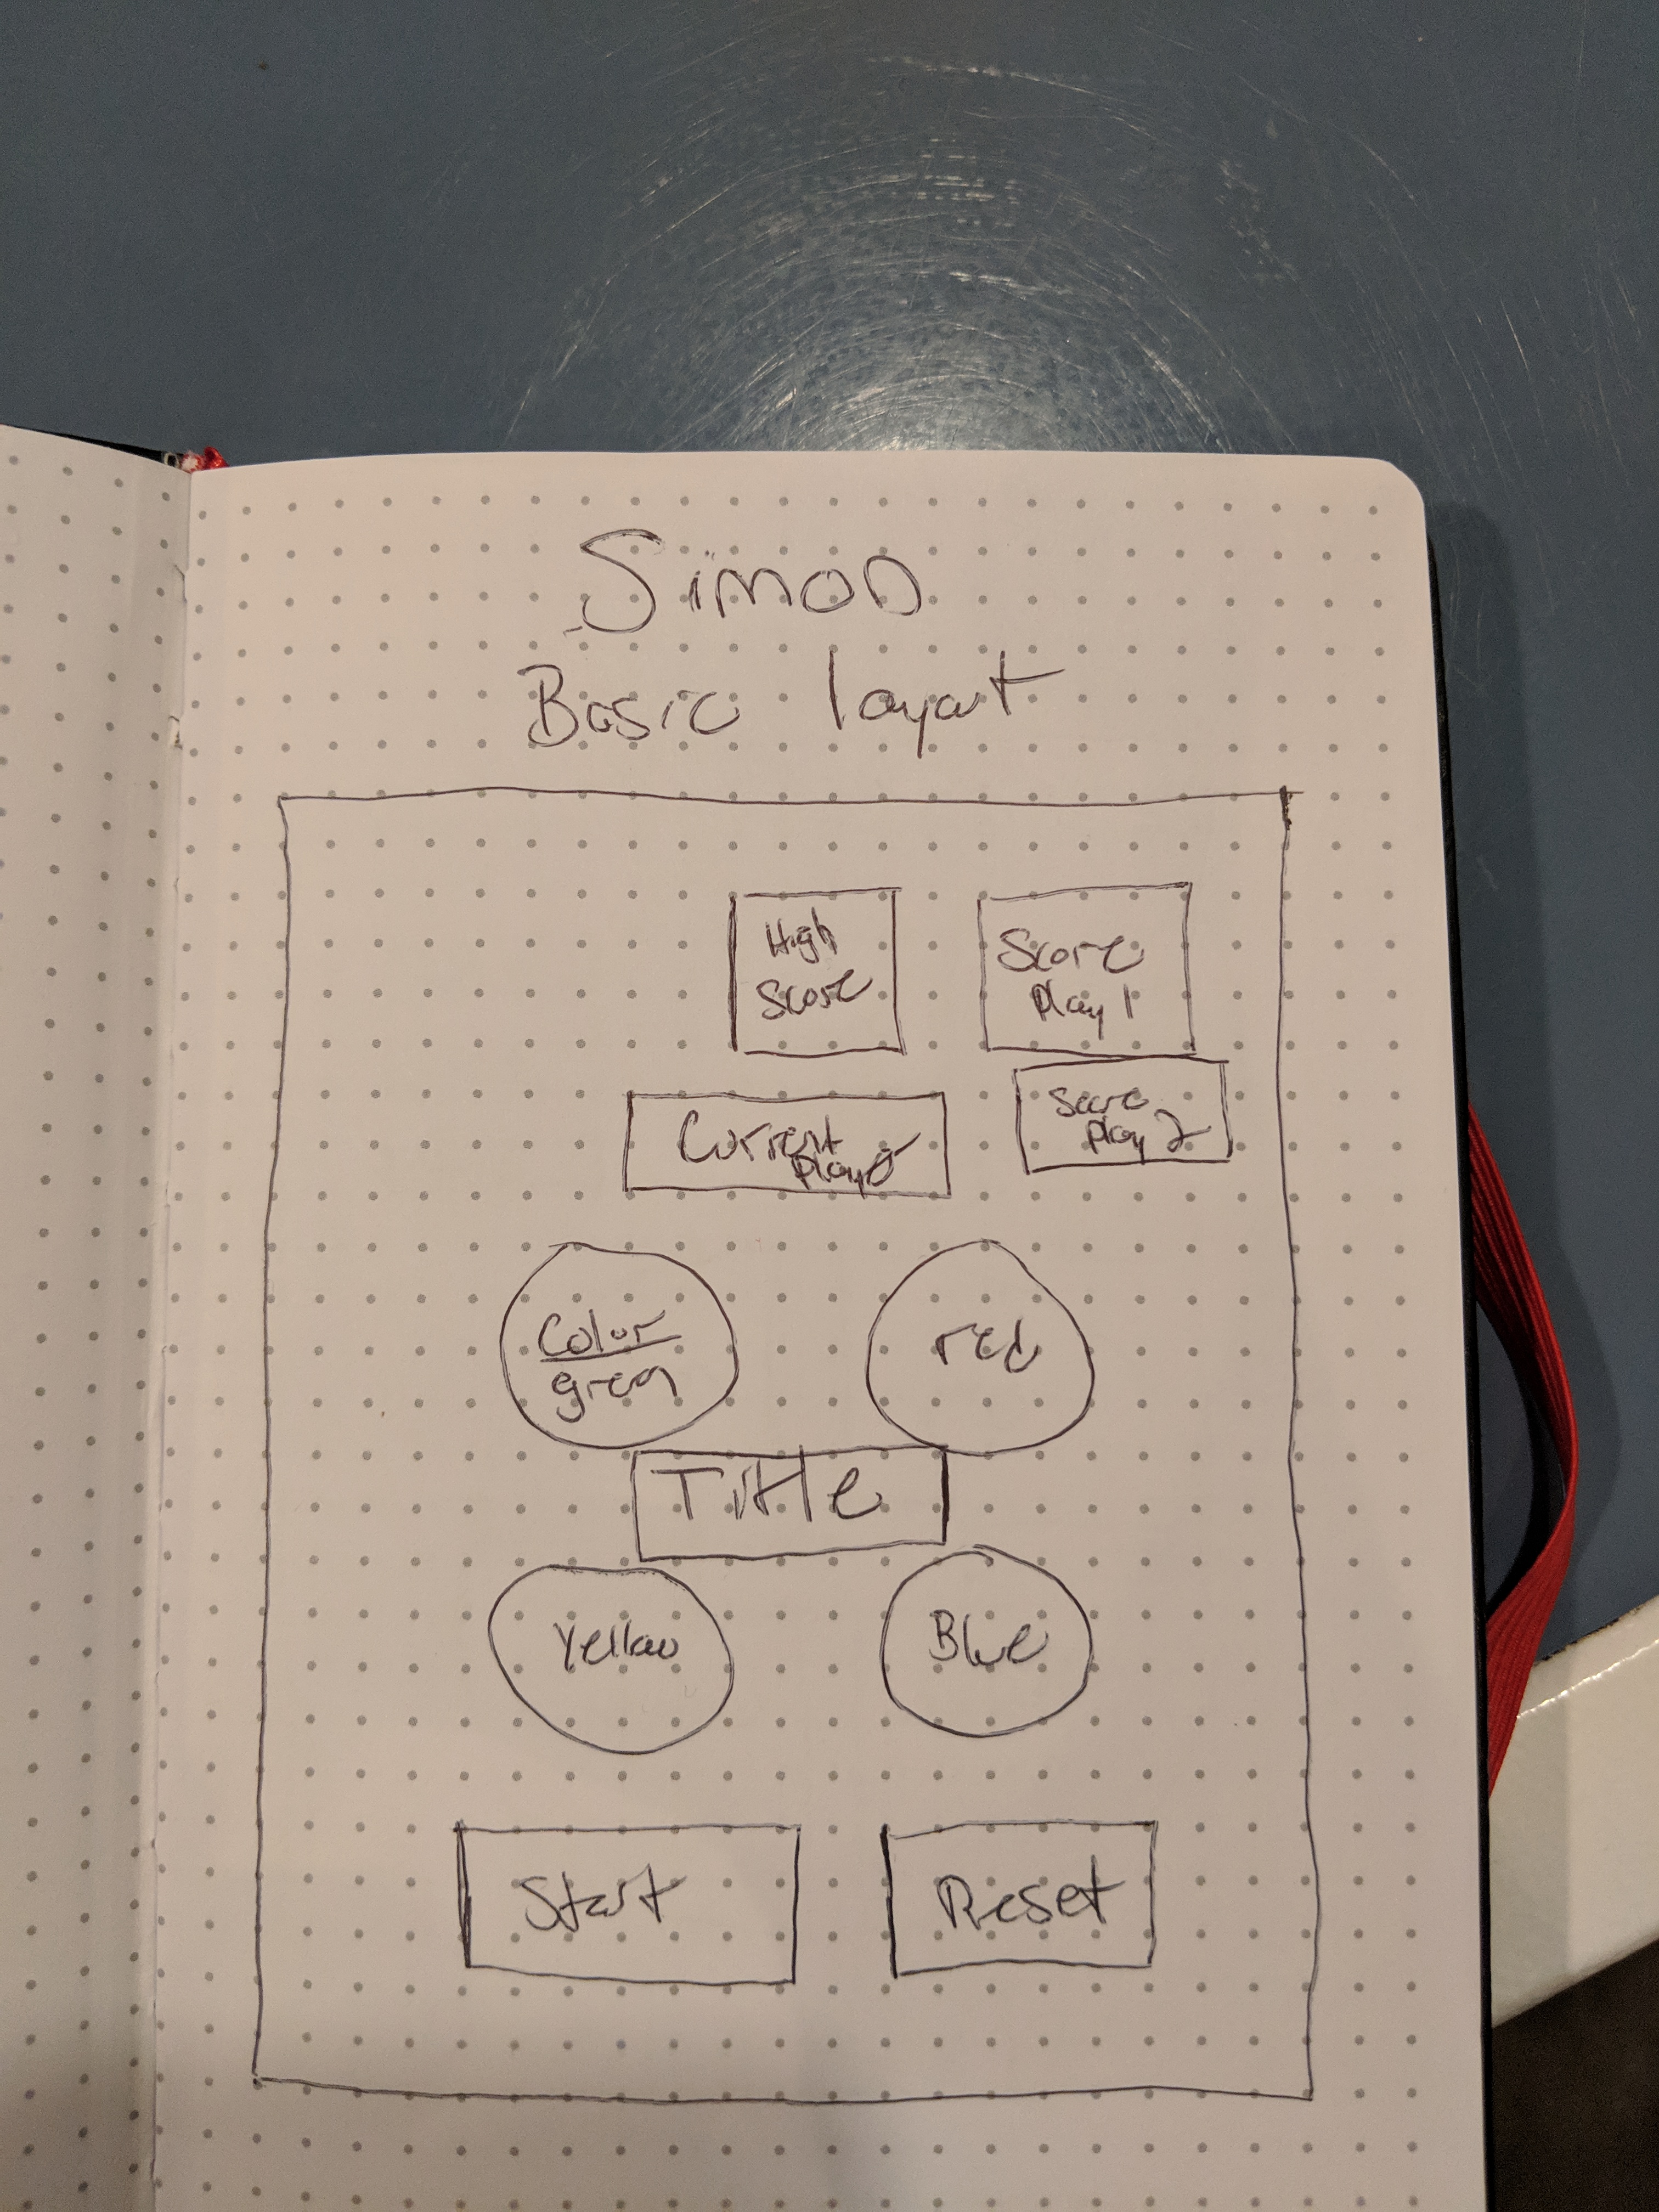 Simon
Basic layout
High
Score
Score
Play 1
Current
Player
Score
Play 2
Color
green
red
Title
Yellow
Blue
Start
Reset